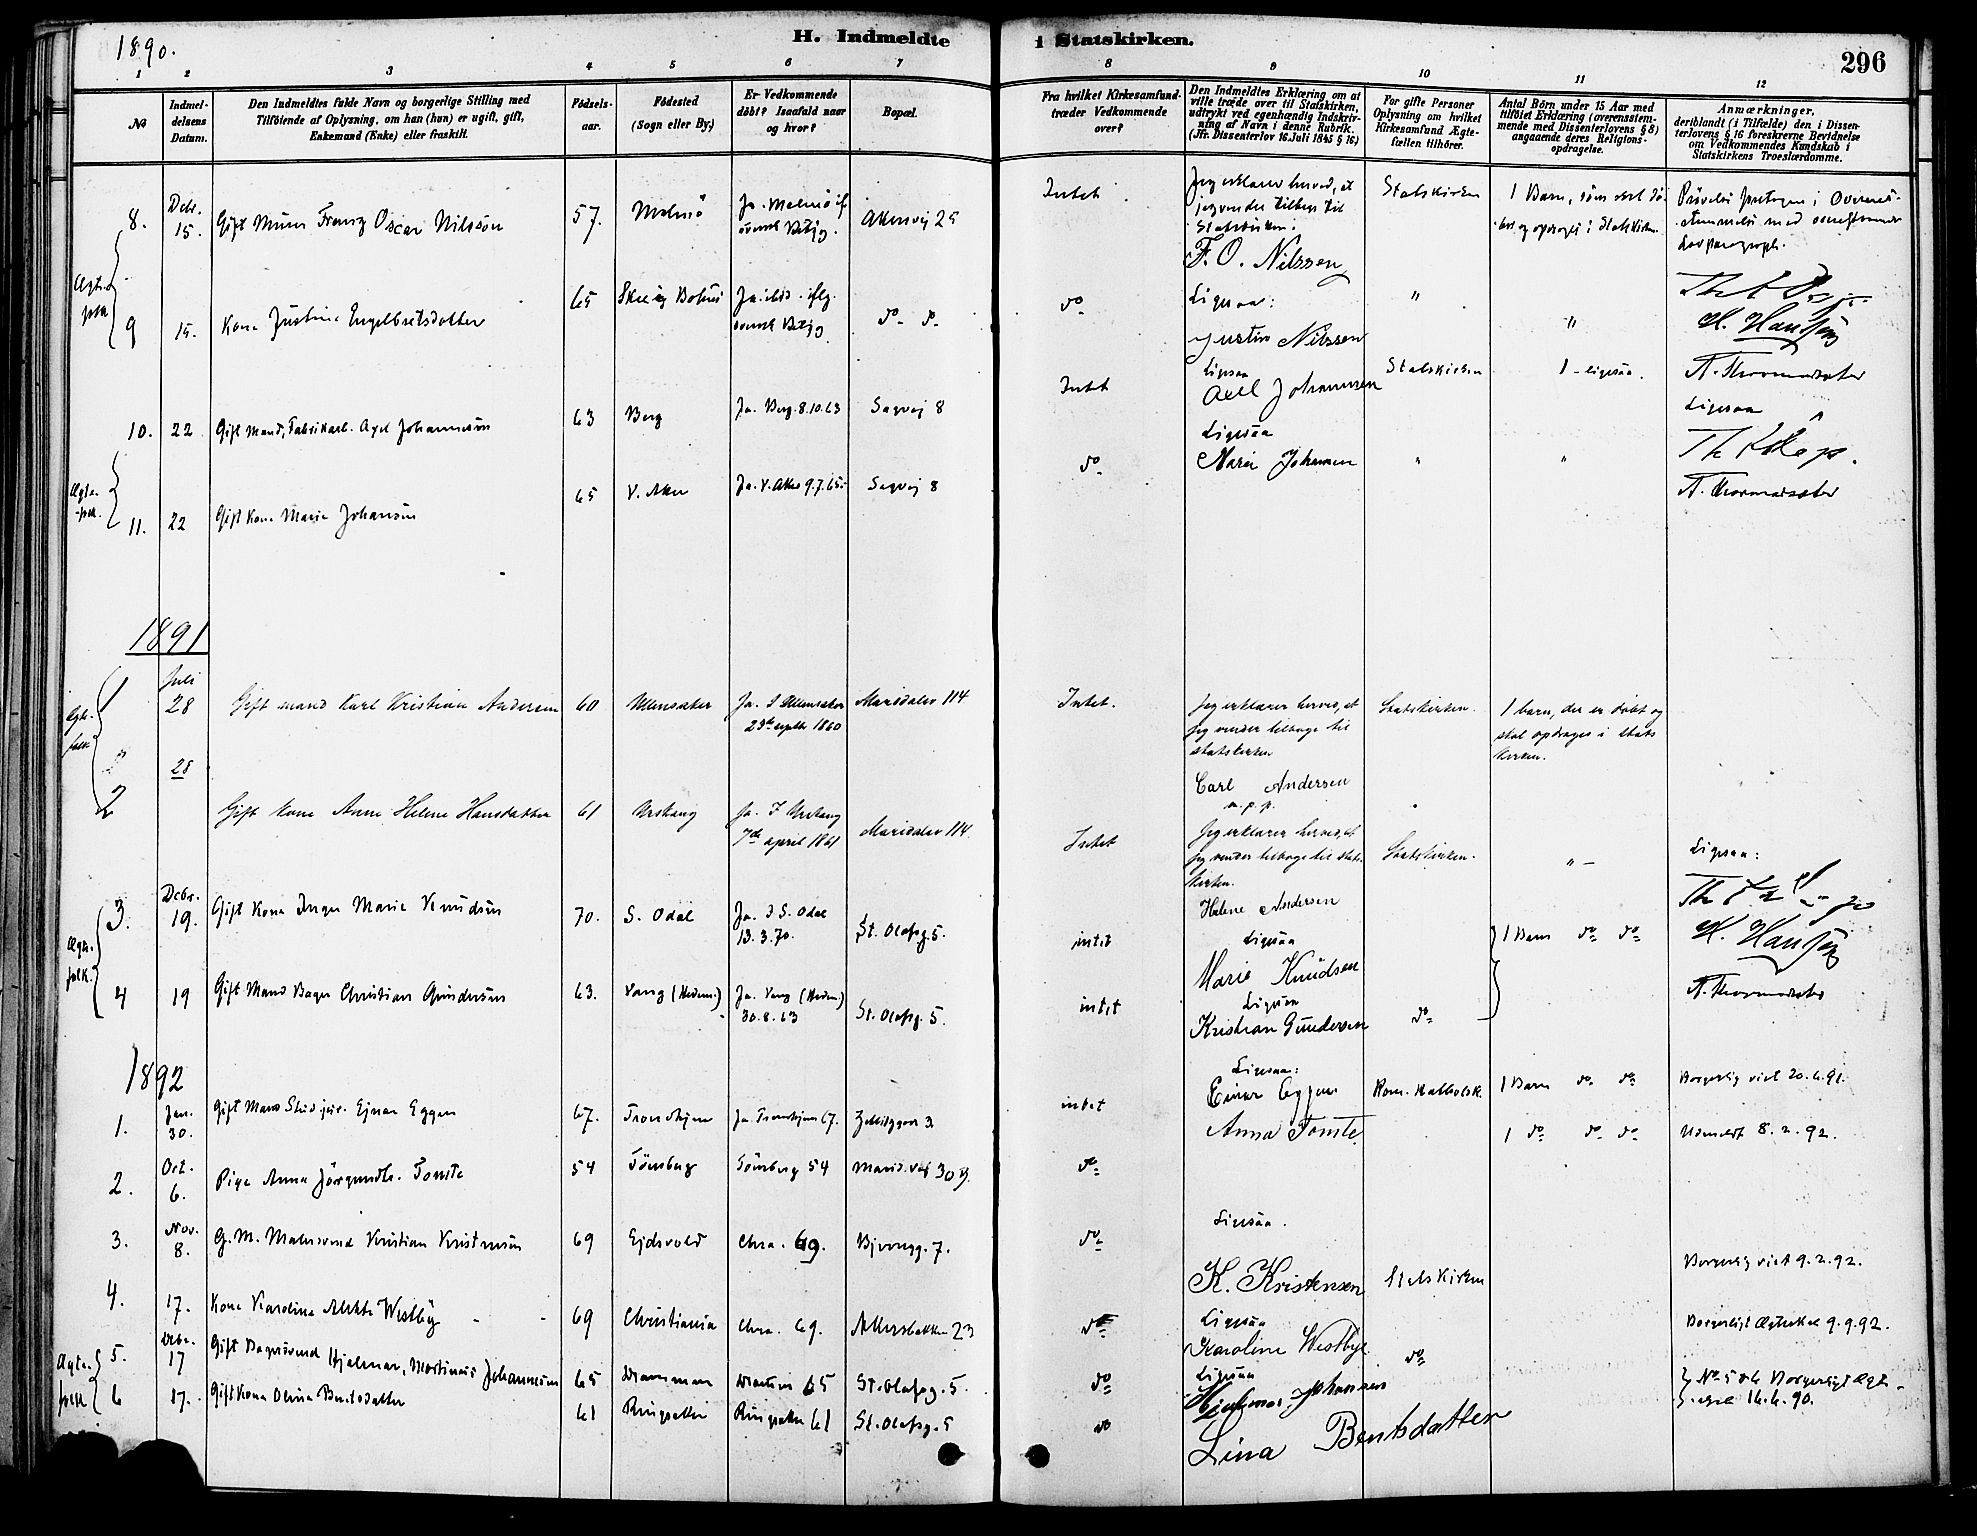 1890.
H. Indmeldte i Statskirken.
296
1 2 3 4 5 6 7 8 9 10 11 12
No
Indmel-
delsens
Datum.
Den Indmeldtes fulde Navn og borgerlige Stilling med
Tilföiende af Oplysning, om han (hun) er ugift, gift,
Enkemand (Enke) eller fraskilt.
Födsels-
aar.
Födested
(Sogn eller By.)
Er Vedkommende
döbt? Isaafald naar
og hvor?
Bopæl.
Fra hvilket Kirkesamfund
træder Vedkommende
over?
Den Indmeldtes Erklæring om at
ville træde over til Statskirken,
udtrykt ved egenhændig Indskriv-
ning af Navn i denne Rubrik.
(Jfr. Dissenterlov 16 Juli 1845 § 16.)
For gifte Personer
Oplysning om hvilket
Kirkesamfund Ægte-
fællen tilhörer.
Antal Börn under 15 Aar med
tilföiet Erklæring (overensstem-
mende med Dissenterlovens § 8)
angaaende deres Religions-
opdragelse.
Anmærkninger,
deriblandt (i Tilfælde) den i Dissen-
terlovens § 16 foreskrevne Bevidnelse
om Vedkommendes Kundskab i
Statskirkens Troeslærdomme.
Ægte-
folk
8. Debr. 15. Gift Murer Franz Oscar Nilsson 57. Malmö Ja. Malmö if. svensk Akersvej 25 Intet
Jeg erklærer herved, at
jeg vender tilbage til
Statskirken.
F. O. Nilssen
Statskirken
1 Barn, som skal dö-
bes og opdrages i Statskirken.
9 15. Kone Justine Engelbretsdatter 65 Ja. iflg. svensk do do do Ligesaa:
Justine Nilssen
" "
H. Hanssen
10. 22 Gift Mand, Fabrikarb. Axel Johannesön 63 Berg Ja. Berg. 8.10.63 Sagvej 8 Intet
Ligesaa
Axel Johannesen
Statskirken 1 - ligesaa.
Ligesaa
Ægte-
folk.
11. 22 Gift Kone Marie Johansen 65 V. Aker Ja. V. Aker 9.7.65. Sagvej 8 do
Ligesaa
Marie Johansen
" "
1891
Ægte-
folk
1 Juli 28 Gift mand Karl Kristian Andersen 60 Ullensaker Ja. I Ullensaker
23de septbr 1860
Maridalsv 114 Intet.
Jeg erklærer herved, at
jeg vender tilbage til
statskirken
Carl Andersen
m. p. p.
Statskirken.
1 barn, der er döbt og
skal opdrages i stats
kirken.
2 28 Gift kone Anne Helene Hansdatter 61 Urskoug Ja. I Urskoug
7de april 1861
Maridalsv 114. Intet
Jeg erklærer herved, at
jeg vender tilbage til stats-
kirken.
Helene Andersen
Statskirken. " -
Ligesaa:
Ægte-
folk.
3. Debr. 19. Gift Kone Inger Marie Knudsen 70. S. Odal Ja. I S. Odal
13.3.70.
St. Olafsg. 5. intet
Ligesaa
Marie Knudsen
1 Barn do do
H. Hanssen
4 19 Gift Mand Bager Christian Gundersen 63. Vang (Hedem.) Ja. Vang (Hedem.)
30.8.63
St. Olafsg. 5. intet
Ligesaa
Kristian Gundersen
do
1892
1. Jan. 30. Gift Mand Stud. jur. Ejnar Eggen 67. Trondhjem Ja. Trondhjem 67. intet
Ligesaa:
Einar Eggen
Rom. Katholsk. 1 Barn do do Borgerlig viet 20.6.91.
2. Oct. 6. Pige Anna Jörgensdtr. Tomte 54 Tönsberg Tönsberg 54 Marid.vej 30 B. do
Anna Tomte
1 do do do Udmeldt 8.2.92.
3. Nov. 8. G. M. Malersvend Kristian Kristensen 69 Ejdsvold Chra. 69. 7. do
Ligesaa.
K. Kristensen
Statskirken
Borgerlig viet 9.2.92.
4. 17. Kone Karoline Westby 69 Christiania Chra. 69. Akersbakken 23 do
Ligesaa
Karoline Westbye
do
Borgerligt Ægteskab 9.9.92.
Ægte-
folk
5. Debr. 17 Gift Bagersvend Hjalmar, Martinius Johannesen 65 Drammen 65 St. Olafsg. 5. do
Ligesaa
Hjalmar Johansen
No 5 & 6 Borgerligt Ægte-
skab 16.6.90.
6 17. Gift Kone Olina Bentsdatter 61 Ringsaker Ringsaker 61 St. Olafsg. 5 do
Lina Bentsdatter